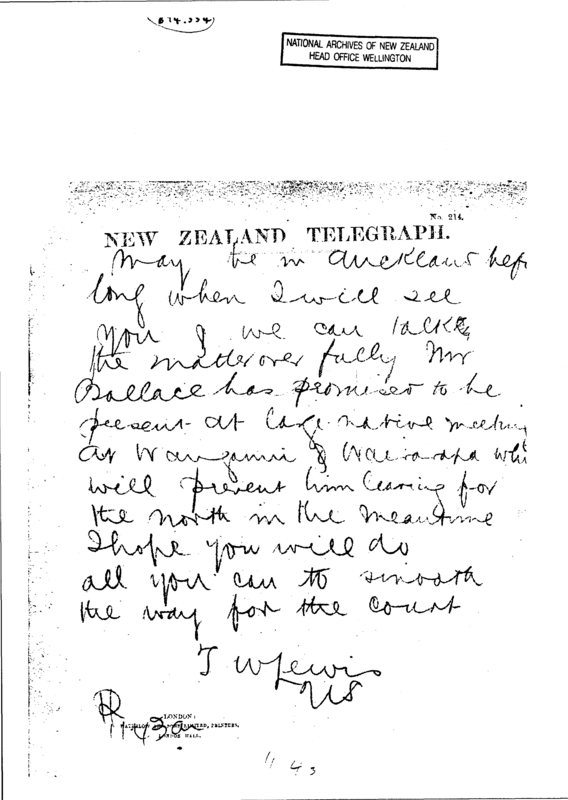 874.334
NATIONAL ARCHIVES OF NEW ZEALAND
HEAD OFFICE WELLINGTON
No. 214.
NEW ZEALAND TELEGRAPH.
May be in Auckland bef
long when I will see
you & we can talk
the matter over fully Mr
Ballace has promised to be
present at large native meeting
at Wanganui & Wairarapa whi
will prevent him leaving for
the north in the meantime
I hope you will do
all you can to smooth
the way for the Court
T W Lewis
US
LONDON:
LIMITED, PRINTERS,
LONDON WALL.